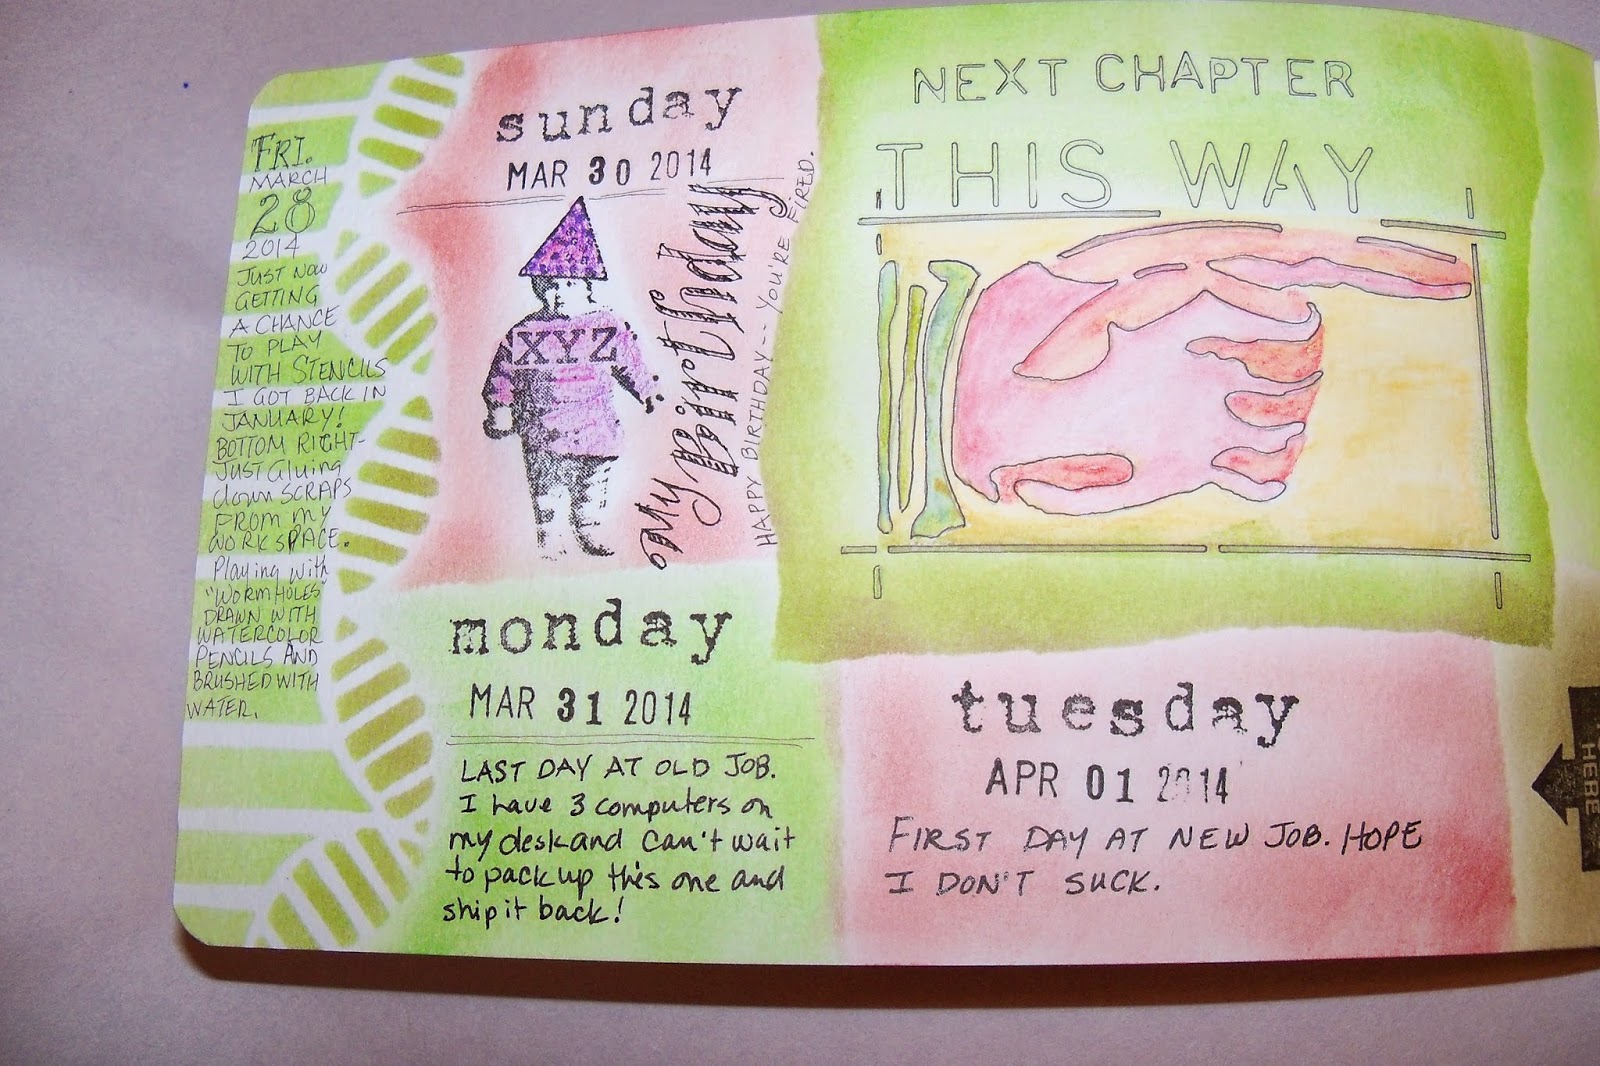 FRI.
MARCH
28
2014
JUST NOW
GETTING
A CHANCE
TO PLAY
WITH STENCILS
I GOT BACK IN
JANUARY!
BOTTOM RIGHT-
JUST GLUING
down SCRAPS
FROM MY
WORKSPACE.
Playing with
"WORMHOLES"
DRAWN WITH
WATERCOLOR
PENCILS AND
BRUSHED WITH
WATER.
sunday
MAR 30 2014
XYZ
My Birthday
HAPPY BIRTHDAY -- YOU'RE FIRED.
monday
MAR 31 2014
LAST DAY AT OLD JOB.
I have 3 computers on
my desk and can't wait
to pack up this one and
ship it back!
NEXT CHAPTER
THIS WAY
tuesday
APR 01 2014
FIRST DAY AT NEW JOB. HOPE
I DON'T SUCK.
HERE